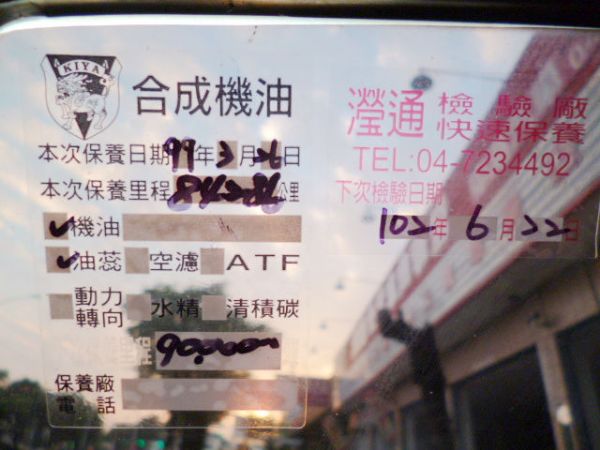 KIYA
合成機油
本次保養日期99年3月26日
本次保養里程84286公里
✓機油
✓油蕊 空濾 ATF
動力轉向 水精 清積碳
90,000
保養廠電話
瀅通 檢驗廠 快速保養
TEL:04-7234492
下次檢驗日期
102年6月22日